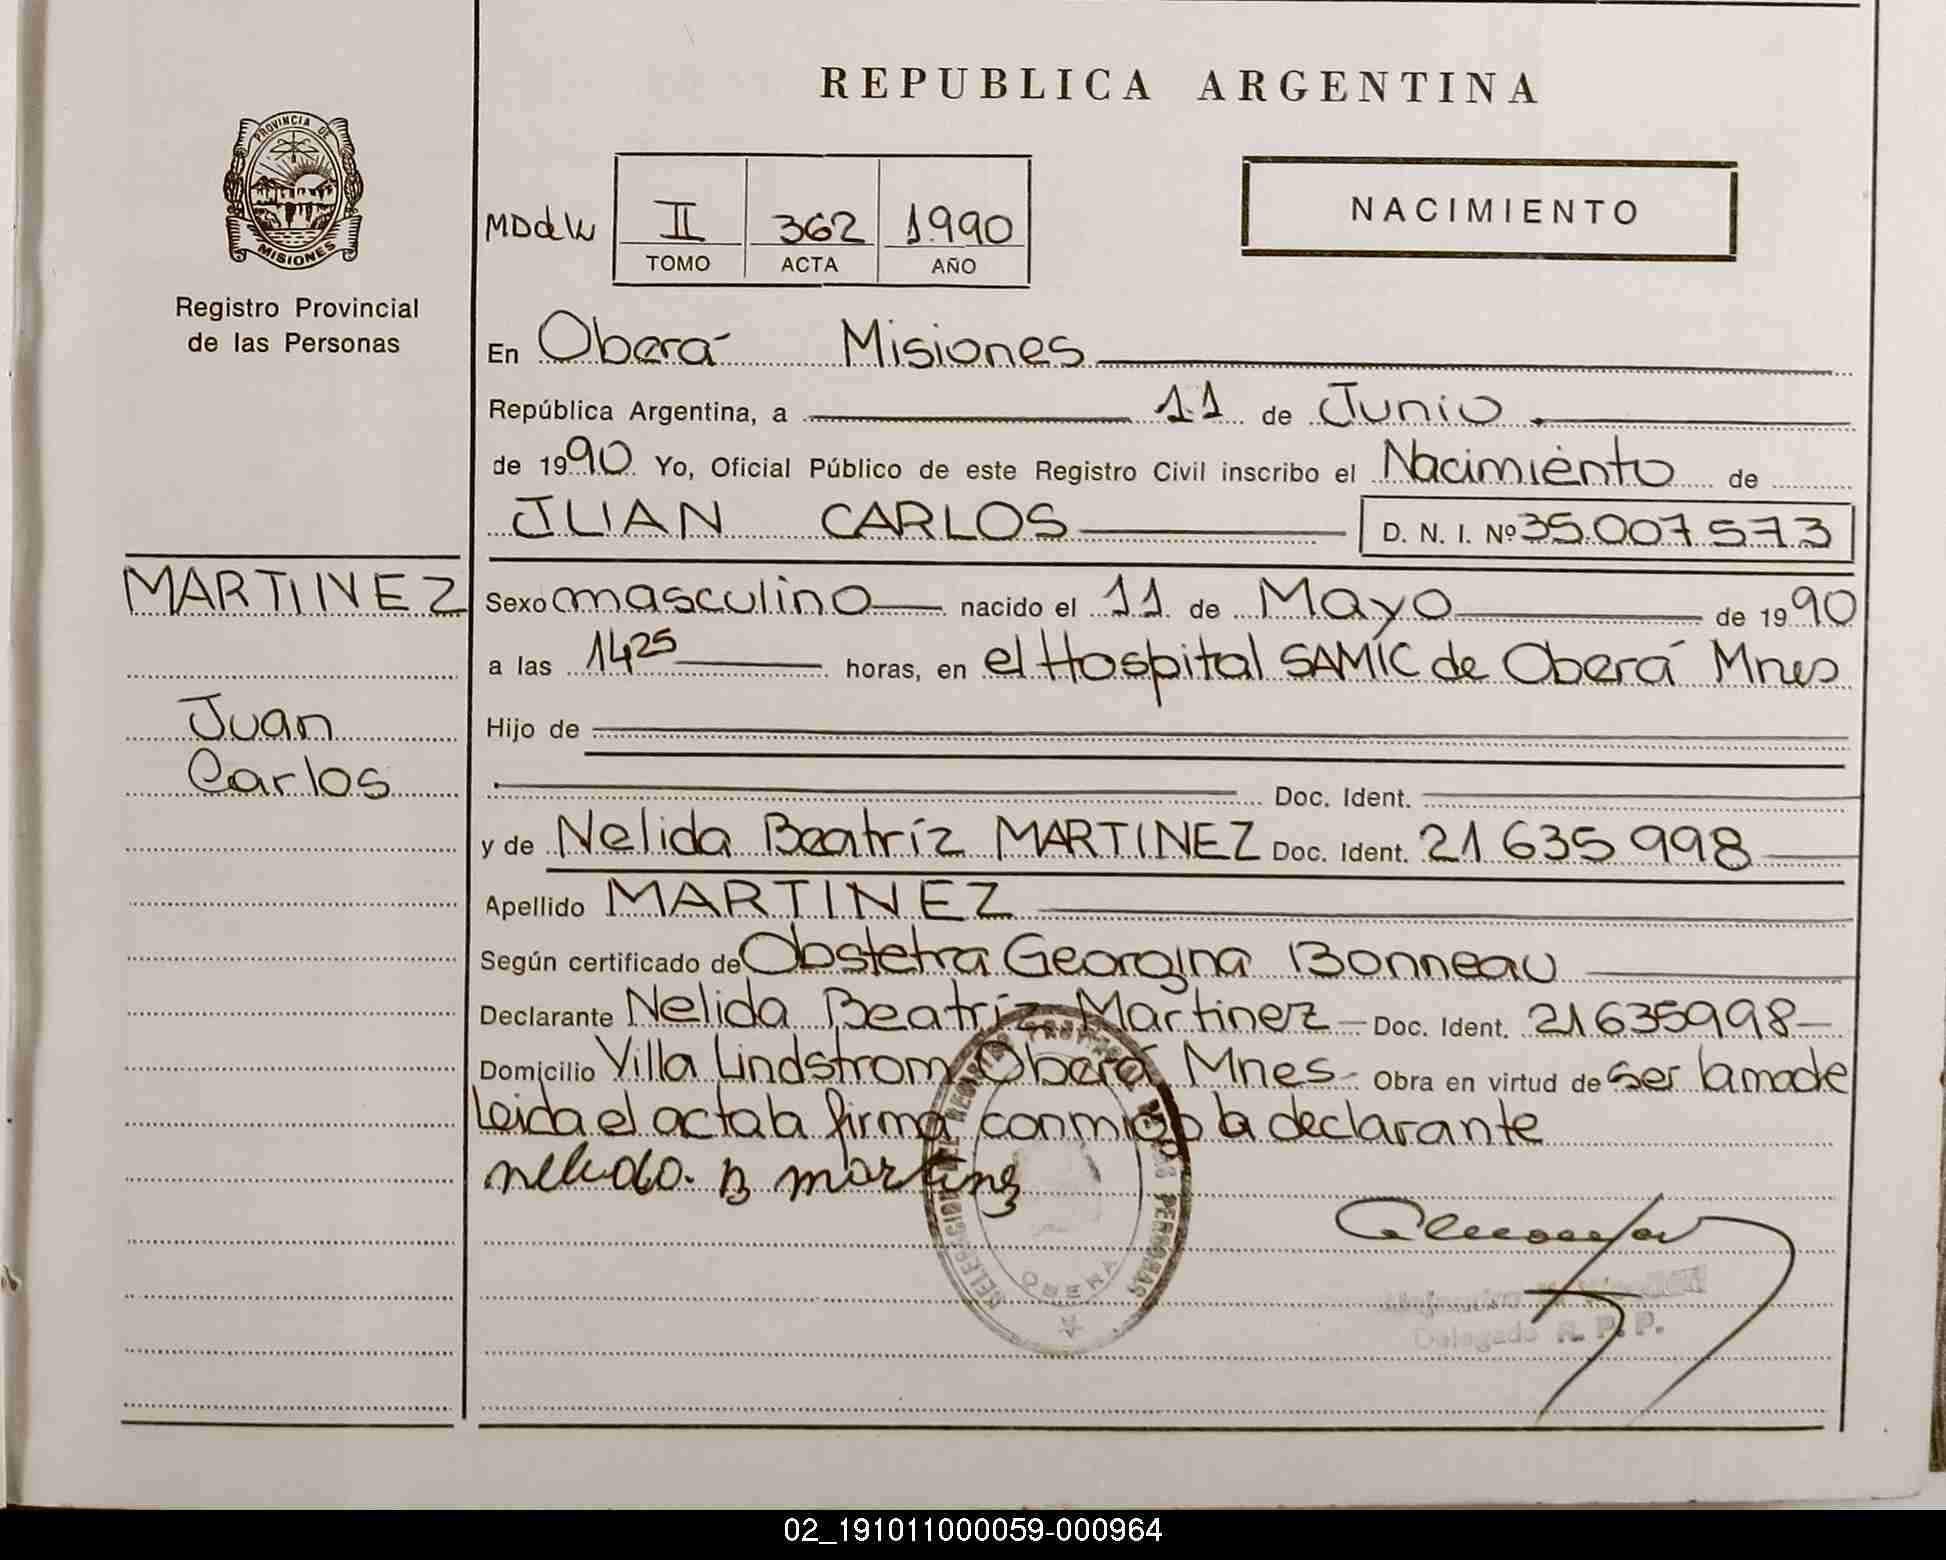 REPUBLICA ARGENTINA
PROVINCIA DE
MISIONES
Registro Provincial
de las Personas
II 362 1990
TOMO ACTA AÑO
NACIMIENTO
En Oberá Misiones
República Argentina, a 11 de Junio
de 1990 Yo, Oficial Público de este Registro Civil inscribo el Nacimiento de
JUAN CARLOS D. N. I. Nº 35.007.573
MARTINEZ
Juan
Carlos
Sexo masculino nacido el 11 de Mayo de 1990
a las 14 25 horas, en el Hospital SAMIC de Oberá Mnes
Hijo de
Doc. Ident.
y de Nelida Beatríz MARTINEZ Doc. Ident. 21 635 998
Apellido MARTINEZ
Según certificado de Obstetra Georgina Bonneau
Declarante Nelida Beatríz Martinez - Doc. Ident. 21635998-
Domicilio Villa Lindstrom Oberá Mnes- Obra en virtud de ser la madre
Leida el acta la firma conmigo la declarante
nelida. B martinez
OBERA
Delegado R. P. P.
02_191011000059-000964